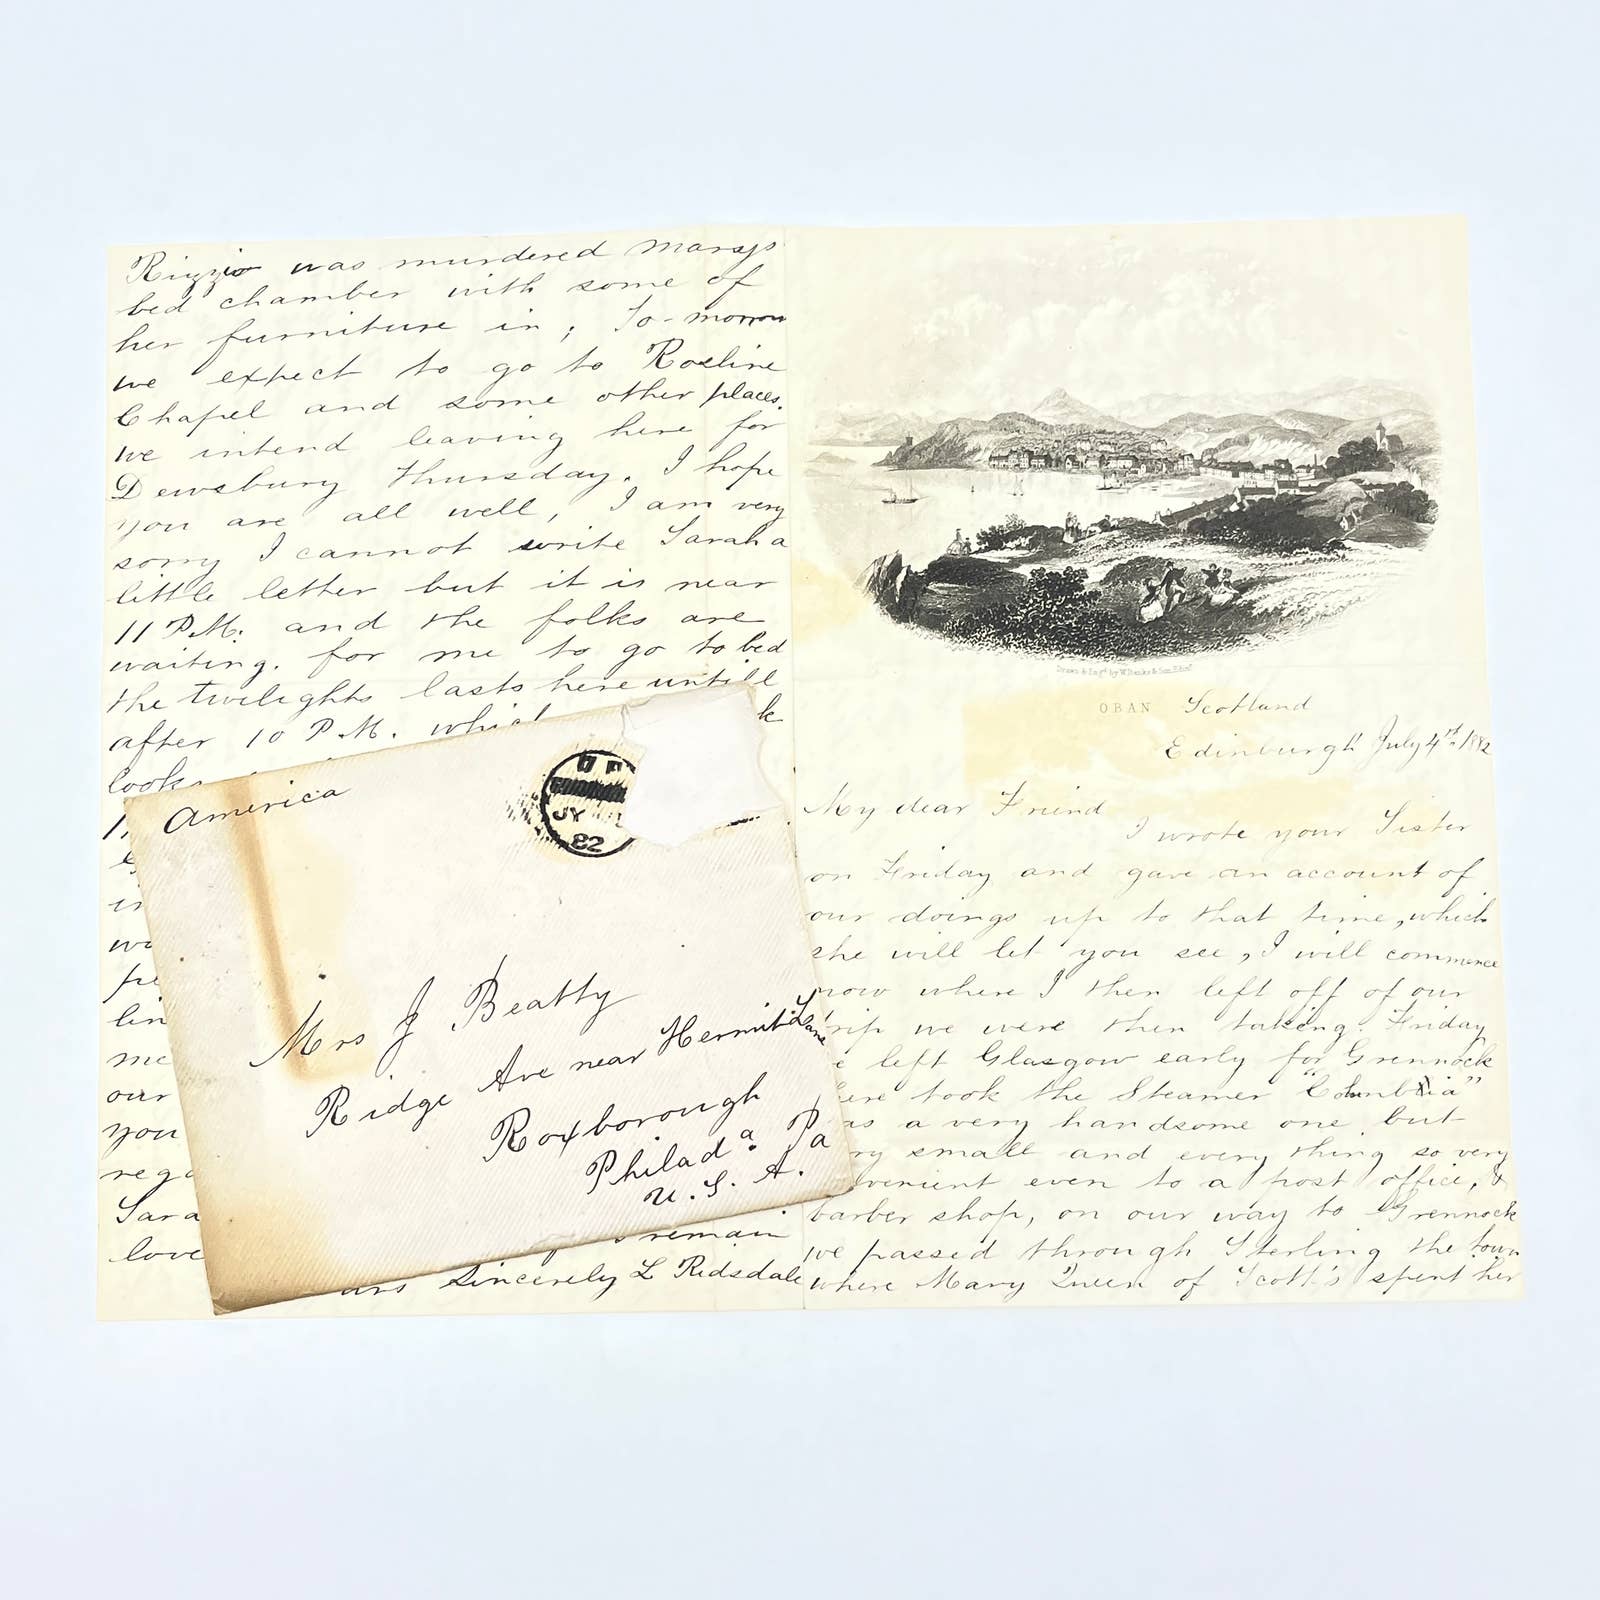 Rizzio was murdered marys
bed chamber with some of
her furniture in; To-morrow
we expect to go to Rosline
Chapel and some other places.
we intend leaving here for
Dewsbury Thursday. I hope
you are all well, I am very
sorry I cannot write Sarah a
little letter but it is near
11 P.M. and the folks are
waiting. for me to go to bed
the twilights lasts here untill
after 10 P.M. which
look
lin
me
our
you
rega
Sara
love
remain
Sincerely L Ridsdale
America
JY
82
Mrs J Beatty
Ridge Ave near Hermit Lane
Roxborough
Philada. Pa
U. S. A.
OBAN Scotland
Edinburgh July 4th 1882
My dear Friend
I wrote your Sister
on Friday and gave an account of
our doings up to that time, which
she will let you see, I will commence
now where I then left off of our
trip we were then taking. Friday
left Glasgow early for Grennock
took the Steamer "Columbia"
a very handsome one but
small and every thing so very
even to a post office, &
barber shop, on our way to Grennock
we passed through Sterling the town
where Mary Queen of Scott's spent her